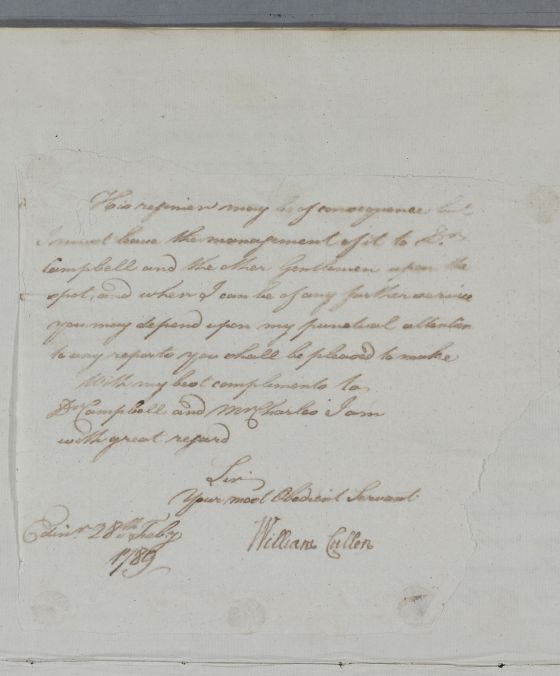 His regimen may be of consequence but
I must leave the management of it to Dr.
Campbell and the other Gentlemen upon the
spot, and when I can be of any further service
you may depend upon my punctual attention
to any reports you shall be pleased to make
With my best compliments to
Dr Campbell and Mr Charles I am
with great regard
Sir
Your most Obedient Servant
Edinr. 28th Feby
1789
William Cullen